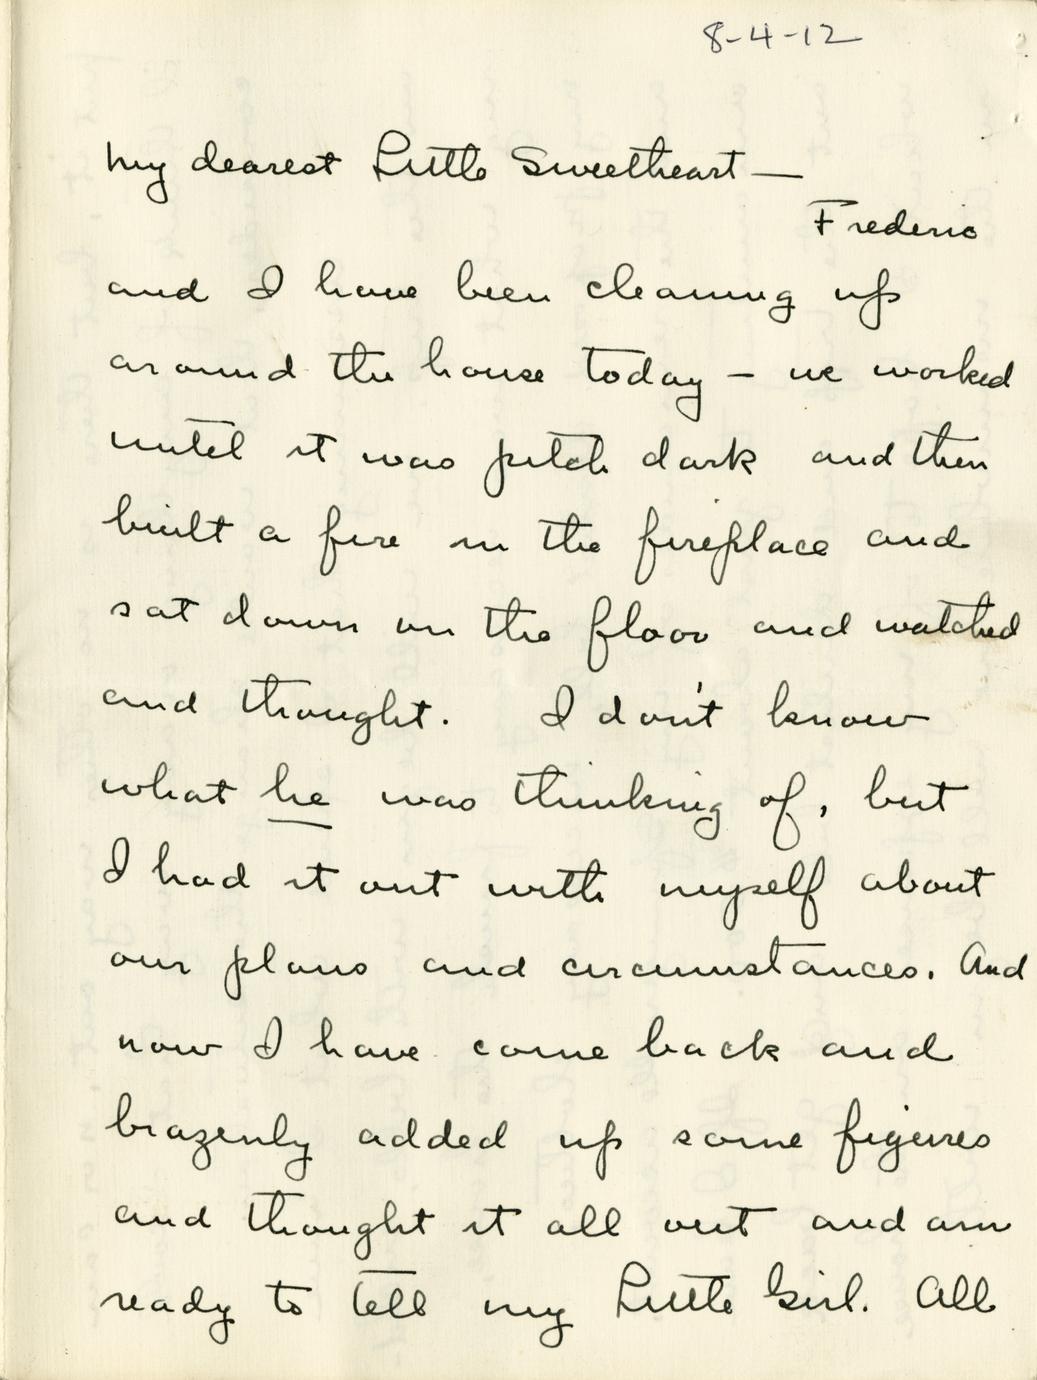 8-4-12
My dearest Little Sweetheart —
Frederic
and I have been cleaning up
around the house today — we worked
until it was pitch dark and then
built a fire in the fireplace and
sat down on the floor and watched
and thought. I don't know
what he was thinking of, but
I had it out with myself about
our plans and circumstances. And
now I have come back and
brazenly added up some figures
and thought it all out and am
ready to tell my Little Girl. All